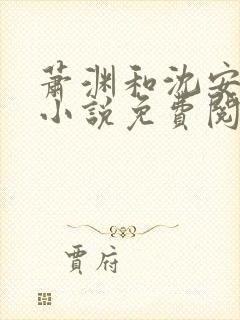 萧渊和沈安
小說免費閱
賈府